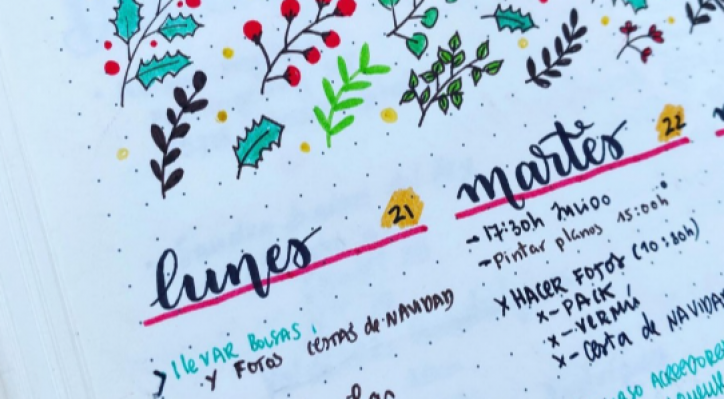 lunes 21
> llevAR BolsAs
y Fotos cestas de NAVIDAD
martes 22
- 17:30h
- Pintar planos 15:00h
x HACER FOTOS (10:30h)
x - PACK
x - VERMÚ
x - Cesta de NAVIDAD